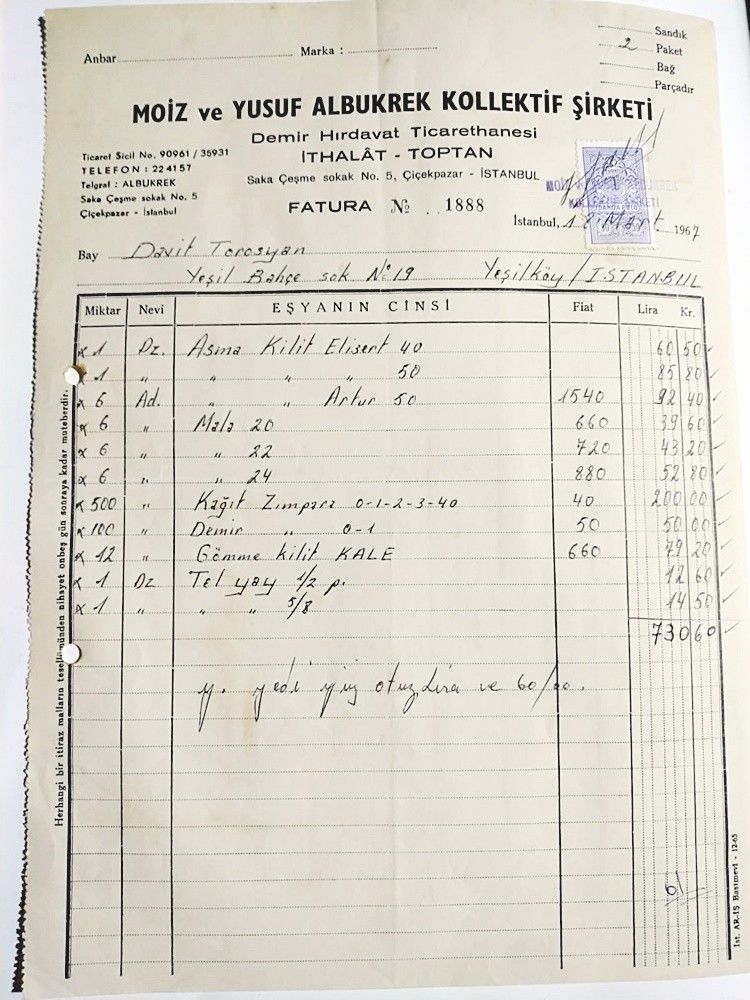 Sandık
Anbar Marka : 2 Paket
Bağ
Parçadır
MOİZ ve YUSUF ALBUKREK KOLLEKTİF ŞİRKETİ
Demir Hırdavat Ticarethanesi
İTHALÂT - TOPTAN
Saka Çeşme sokak No. 5, Çiçekpazar - İSTANBUL
Ticaret Sicil No. 90961 / 35931
TELEFON : 224157
Telgraf : ALBUKREK
Saka Çeşme sokak No. 5
Çiçekpazar - İstanbul
FATURA No 1888
İstanbul, 18 Mart 1967
Bay Davit Torosyan
Yeşil Bahçe sok No 19 Yeşilköy / İSTANBUL
Miktar Nevi EŞYANIN CİNSİ Fiat Lira Kr.
1 Dz. Asma Kilit Elisert 40 60 50
1 " " " " 50 85 80
6 Ad. " " Artur 50 1540 92 40
6 " Mala 20 660 39 60
6 " " 22 720 43 20
6 " " 24 880 52 80
500 " Kağıt Zımpara 0-1-2-3-40 40 200 00
100 " Demir " 0-1 50 50 00
12 " Gömme kilit KALE 660 79 20
1 Dz Tel yay 1/2 p. 12 60
1 " " " 5/8 14 50
730 60
y. yedi yüz otuz Lira ve 60/00.
61
Herhangi bir itiraz malların tesellümünden nihayet onbeş gün sonraya kadar muteberdir.
Ist. AR-IŞ Basımevi - 12-65